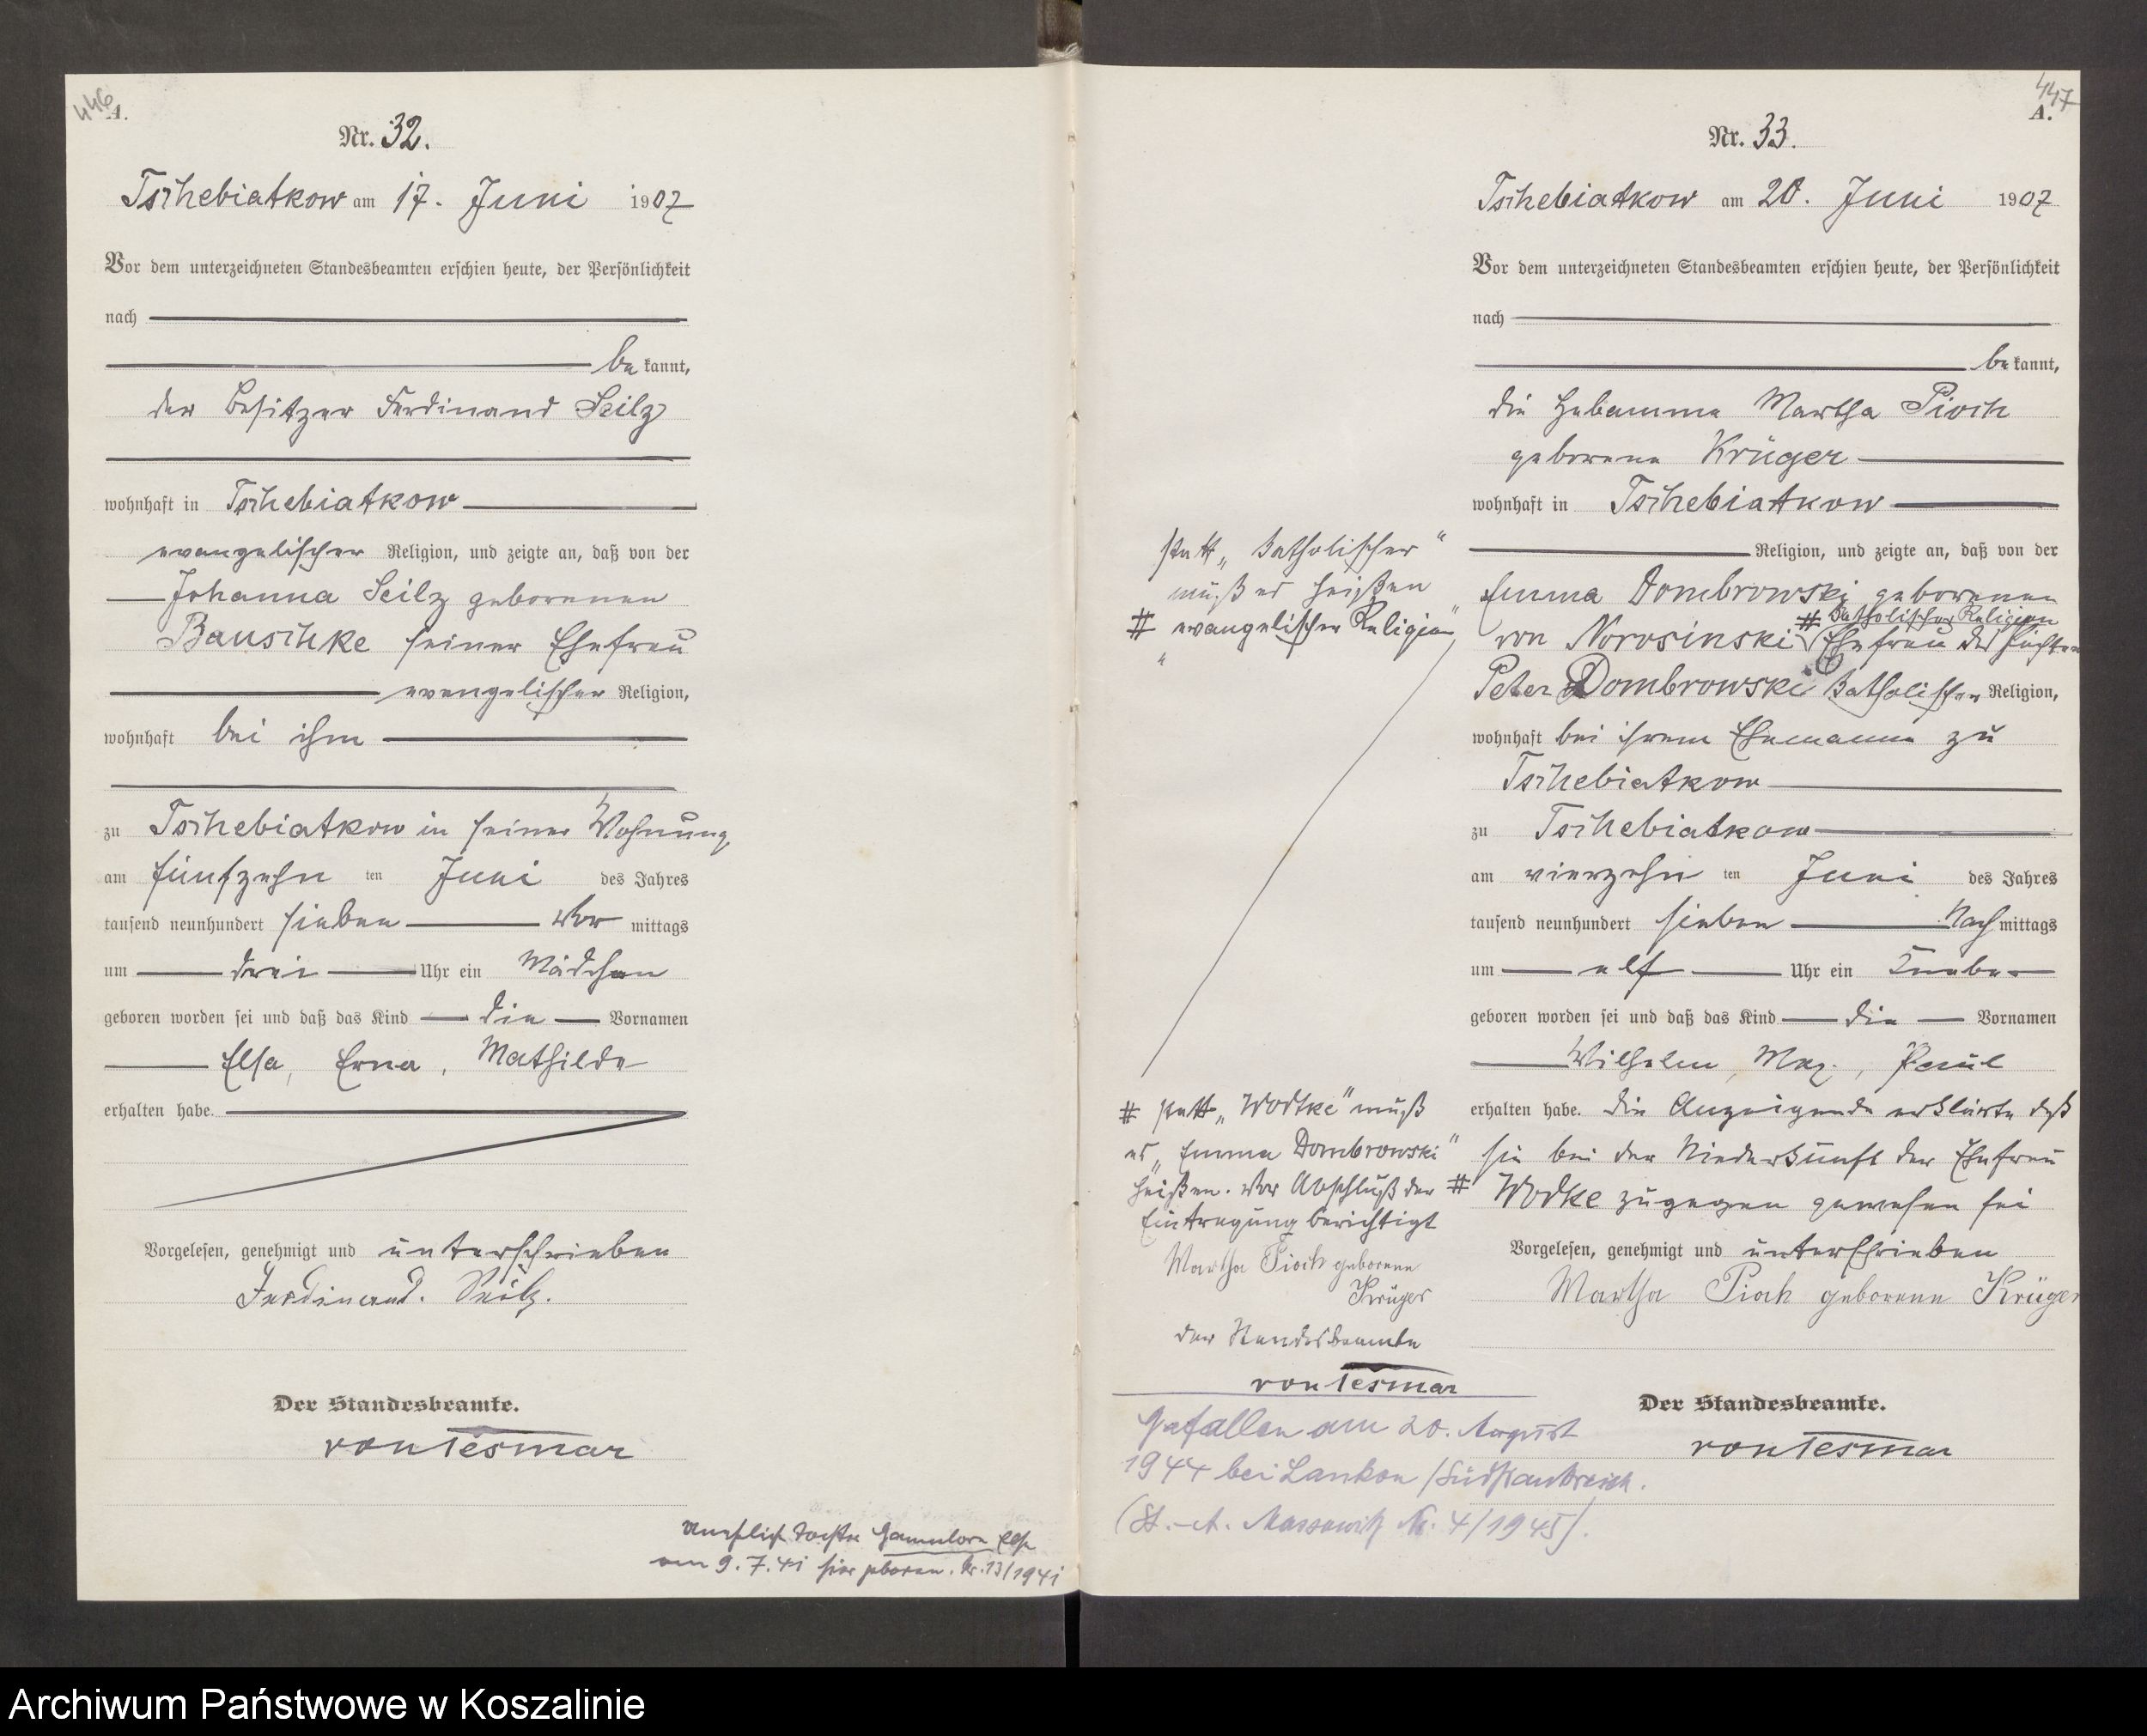 446
A.
Nr. 32.
Tschebiatkow am 17. Juni 1907
Vor dem unterzeichneten Standesbeamten erschien heute, der Persönlichkeit
nach
be kannt,
der Besitzer Ferdinand Seilz
wohnhaft in Tschebiatkow
evangelischer Religion, und zeigte an, daß von der
Johanna Seilz geborenen
Bauschke seiner Ehefrau
evangelischer Religion,
wohnhaft bei ihm
zu Tschebiatkow in seiner Wohnung
am fünfzehn ten Juni des Jahres
tausend neunhundert sieben Vor mittags
um drei Uhr ein Mädchen
geboren worden sei und daß das Kind die Vornamen
Elsa, Erna, Mathilde
erhalten habe.
Vorgelesen, genehmigt und unterschrieben
Ferdinand. Seilz.
Der Standesbeamte.
von Tesmar
Tochter Else
am 9. 7. 41 hier geboren. Nr. 13/1941
447
A.
Nr. 33.
Tschebiatkow am 20. Juni 1907
Vor dem unterzeichneten Standesbeamten erschien heute, der Persönlichkeit
nach
be kannt,
die Hebamme Martha Pioch
geborene Krüger
wohnhaft in Tschebiatkow
Religion, und zeigte an, daß von der
Emma Dombrowski geborenen
# katholischer Religion
von Norosinski Ehefrau des
Peter Dombrowski katholischer Religion,
wohnhaft bei ihrem Ehemanne zu
Tschebiatkow
zu Tschebiatkow
am vierzehn ten Juni des Jahres
tausend neunhundert sieben Nach mittags
um elf Uhr ein Knabe
geboren worden sei und daß das Kind die Vornamen
Wilhelm, Max, Paul
erhalten habe. Die Anzeigende erklärte daß
sie bei der Niederkunft der Ehefrau
# Wodtke zugegen gewesen sei
Vorgelesen, genehmigt und unterschrieben
Martha Pioch geborene Krüger
Der Standesbeamte.
von Tesmar
statt „katholischer"
muß es heißen
# „evangelischer Religion"
# statt „Wodtke" muß
es „Emma Dombrowski"
heißen. Vor Abschluß der
Eintragung berichtigt
Martha Pioch geborene
Krüger
Der Standesbeamte
von Tesmar
Gefallen am 20. August
1944 bei /Südfrankreich.
(St.-A. Massowitz Nr. 4/1945).
Archiwum Państwowe w Koszalinie